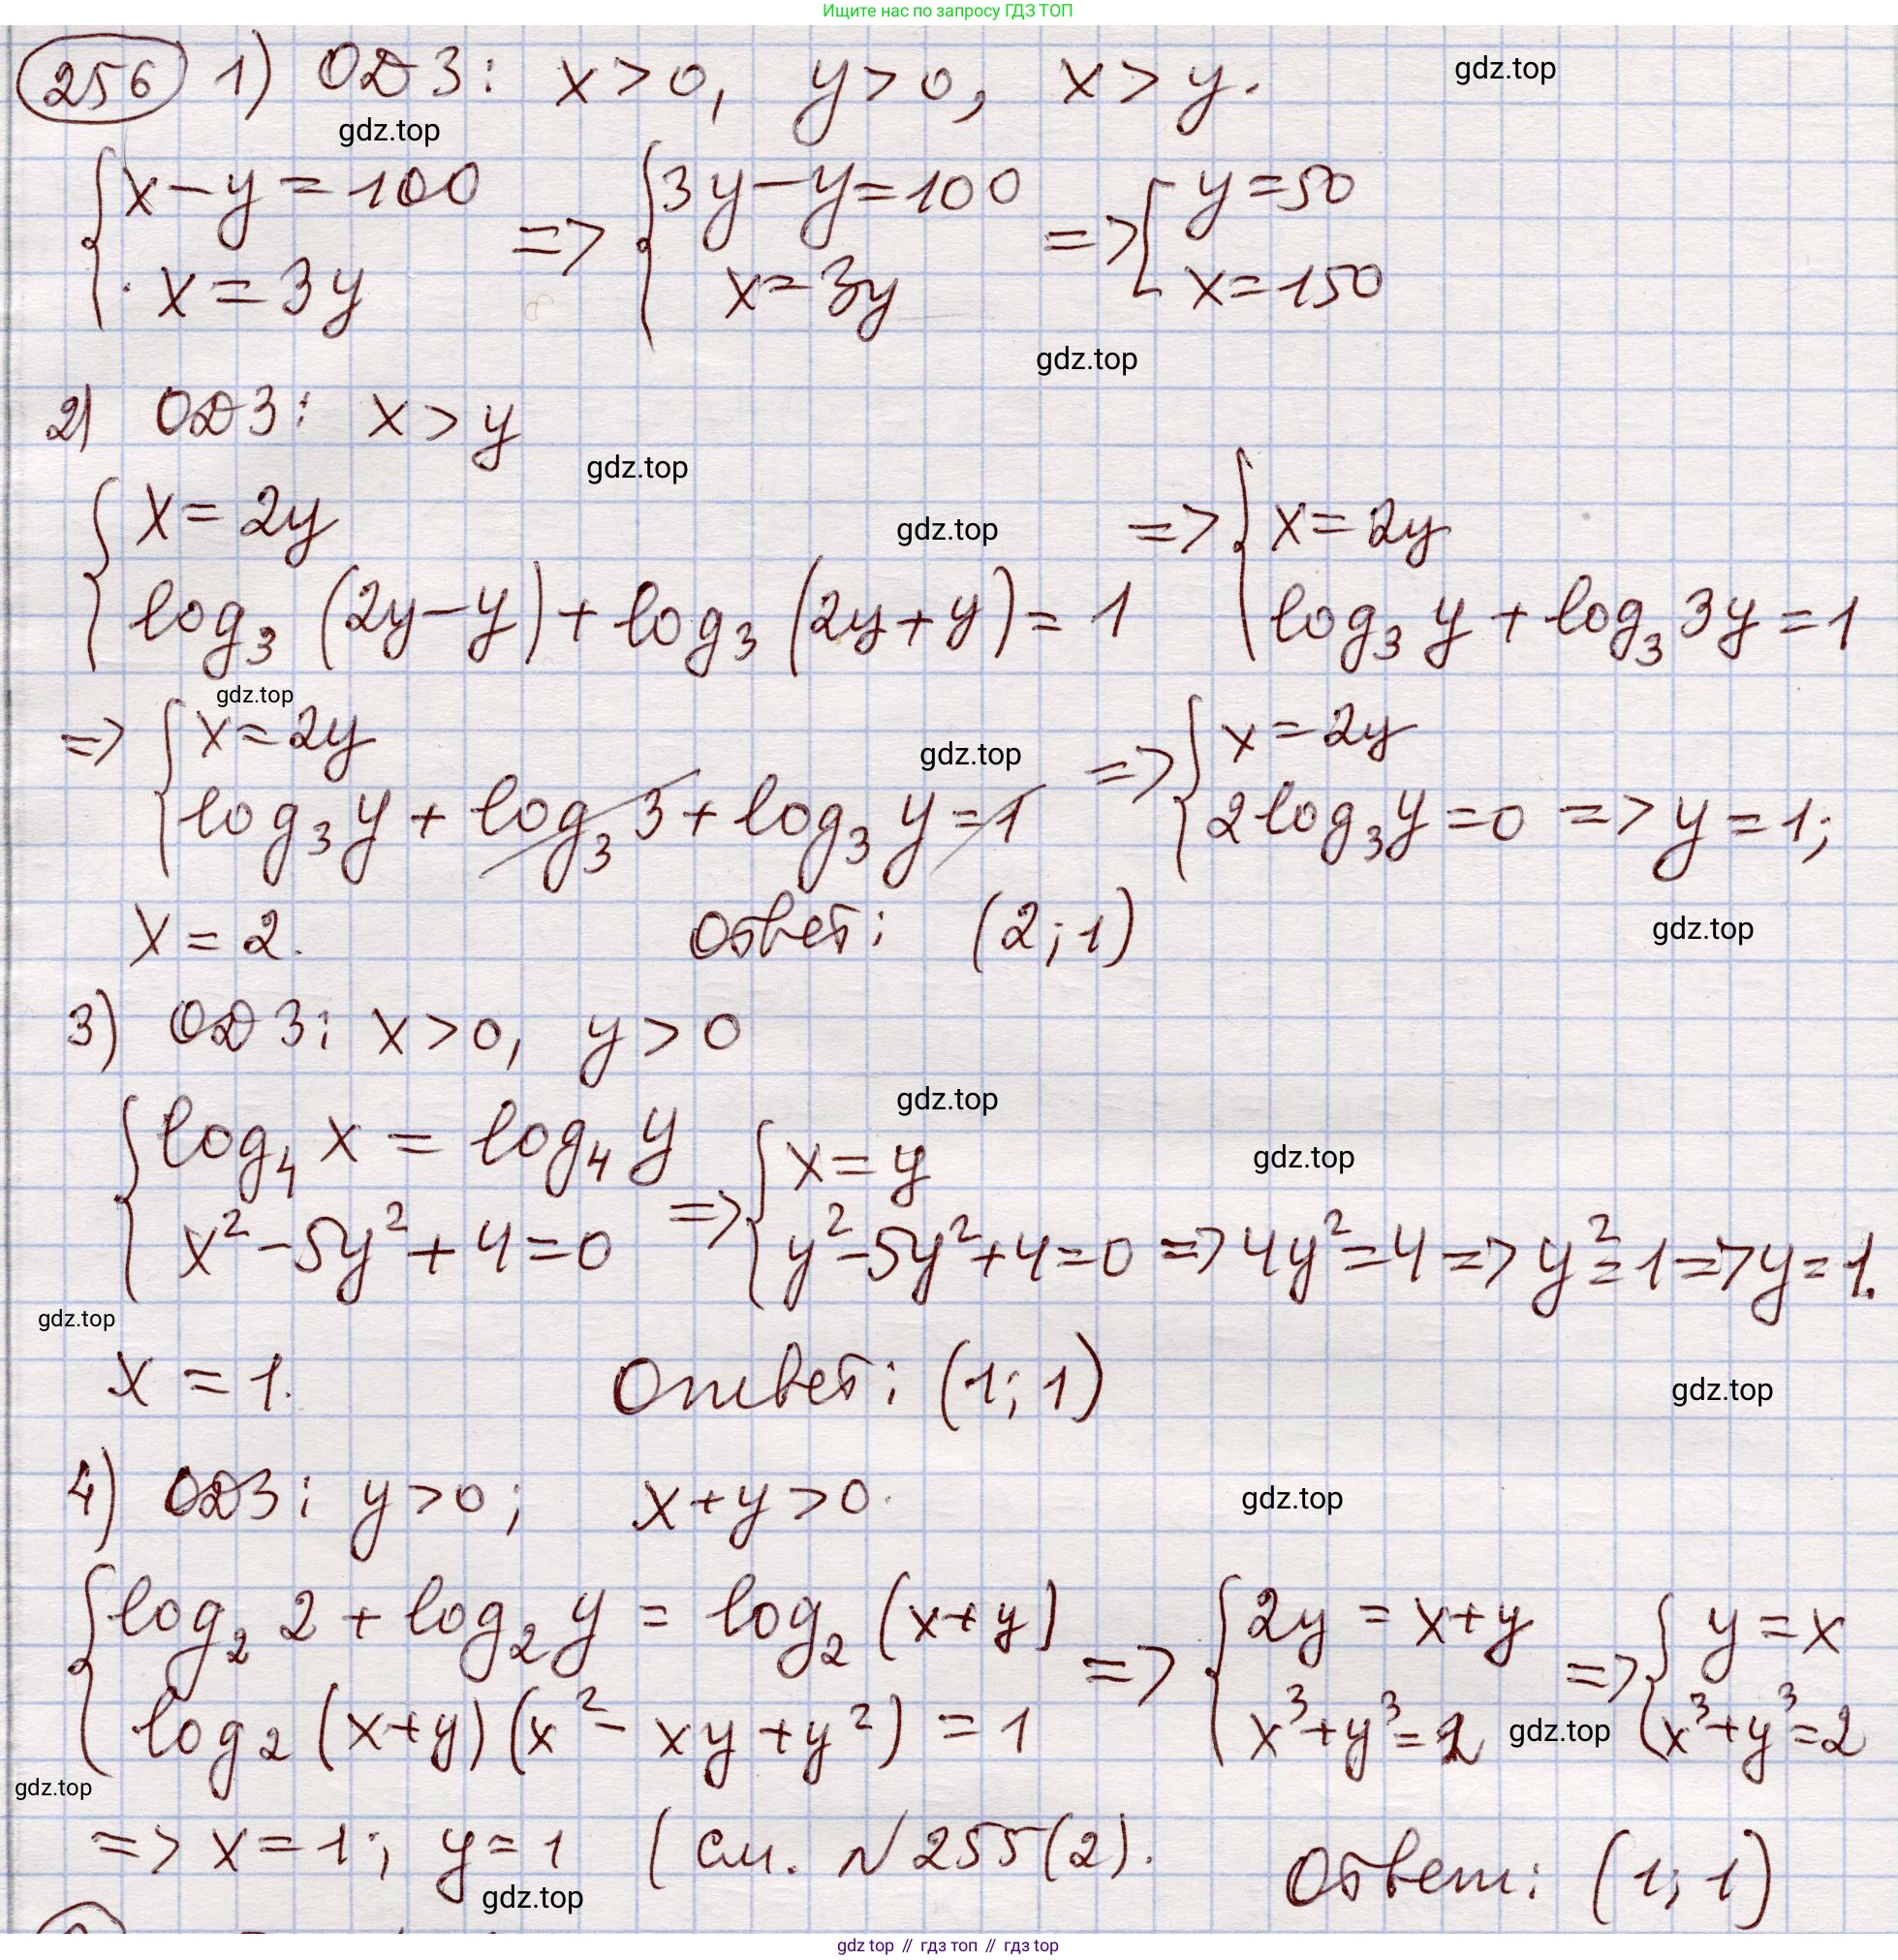 Ищите нас по запросу ГДЗ ТОП
256 1) ОДЗ: x>0, y>0, x>y.
gdz.top
gdz.top
{x-y=100 => {3y-y=100 => [y=50
x=3y x=3y x=150
gdz.top
2) ОДЗ: x>y
gdz.top
{x=2y gdz.top => {x=2y
log₃(2y-y)+log₃(2y+y)=1 log₃y+log₃3y=1
gdz.top
=> {x=2y gdz.top => {x=2y
log₃y+log₃3+log₃y=1 2log₃y=0 => y=1;
x=2. Ответ: (2;1) gdz.top
3) ОДЗ: x>0, y>0
gdz.top
{log₄x=log₄y => {x=y gdz.top
x²-5y²+4=0 y²-5y²+4=0 => 4y²=4 => y²=1 => y=1.
gdz.top
x=1. Ответ: (1;1) gdz.top
4) ОДЗ: y>0; x+y>0. gdz.top
{log₂2+log₂y=log₂(x+y) => {2y=x+y => {y=x
log₂(x+y)(x²-xy+y²)=1 x³+y³=2 gdz.top x³+y³=2
gdz.top
=> x=1; y=1 (см. №255(2). Ответ: (1;1)
gdz.top
gdz top // гдз топ // гдз top